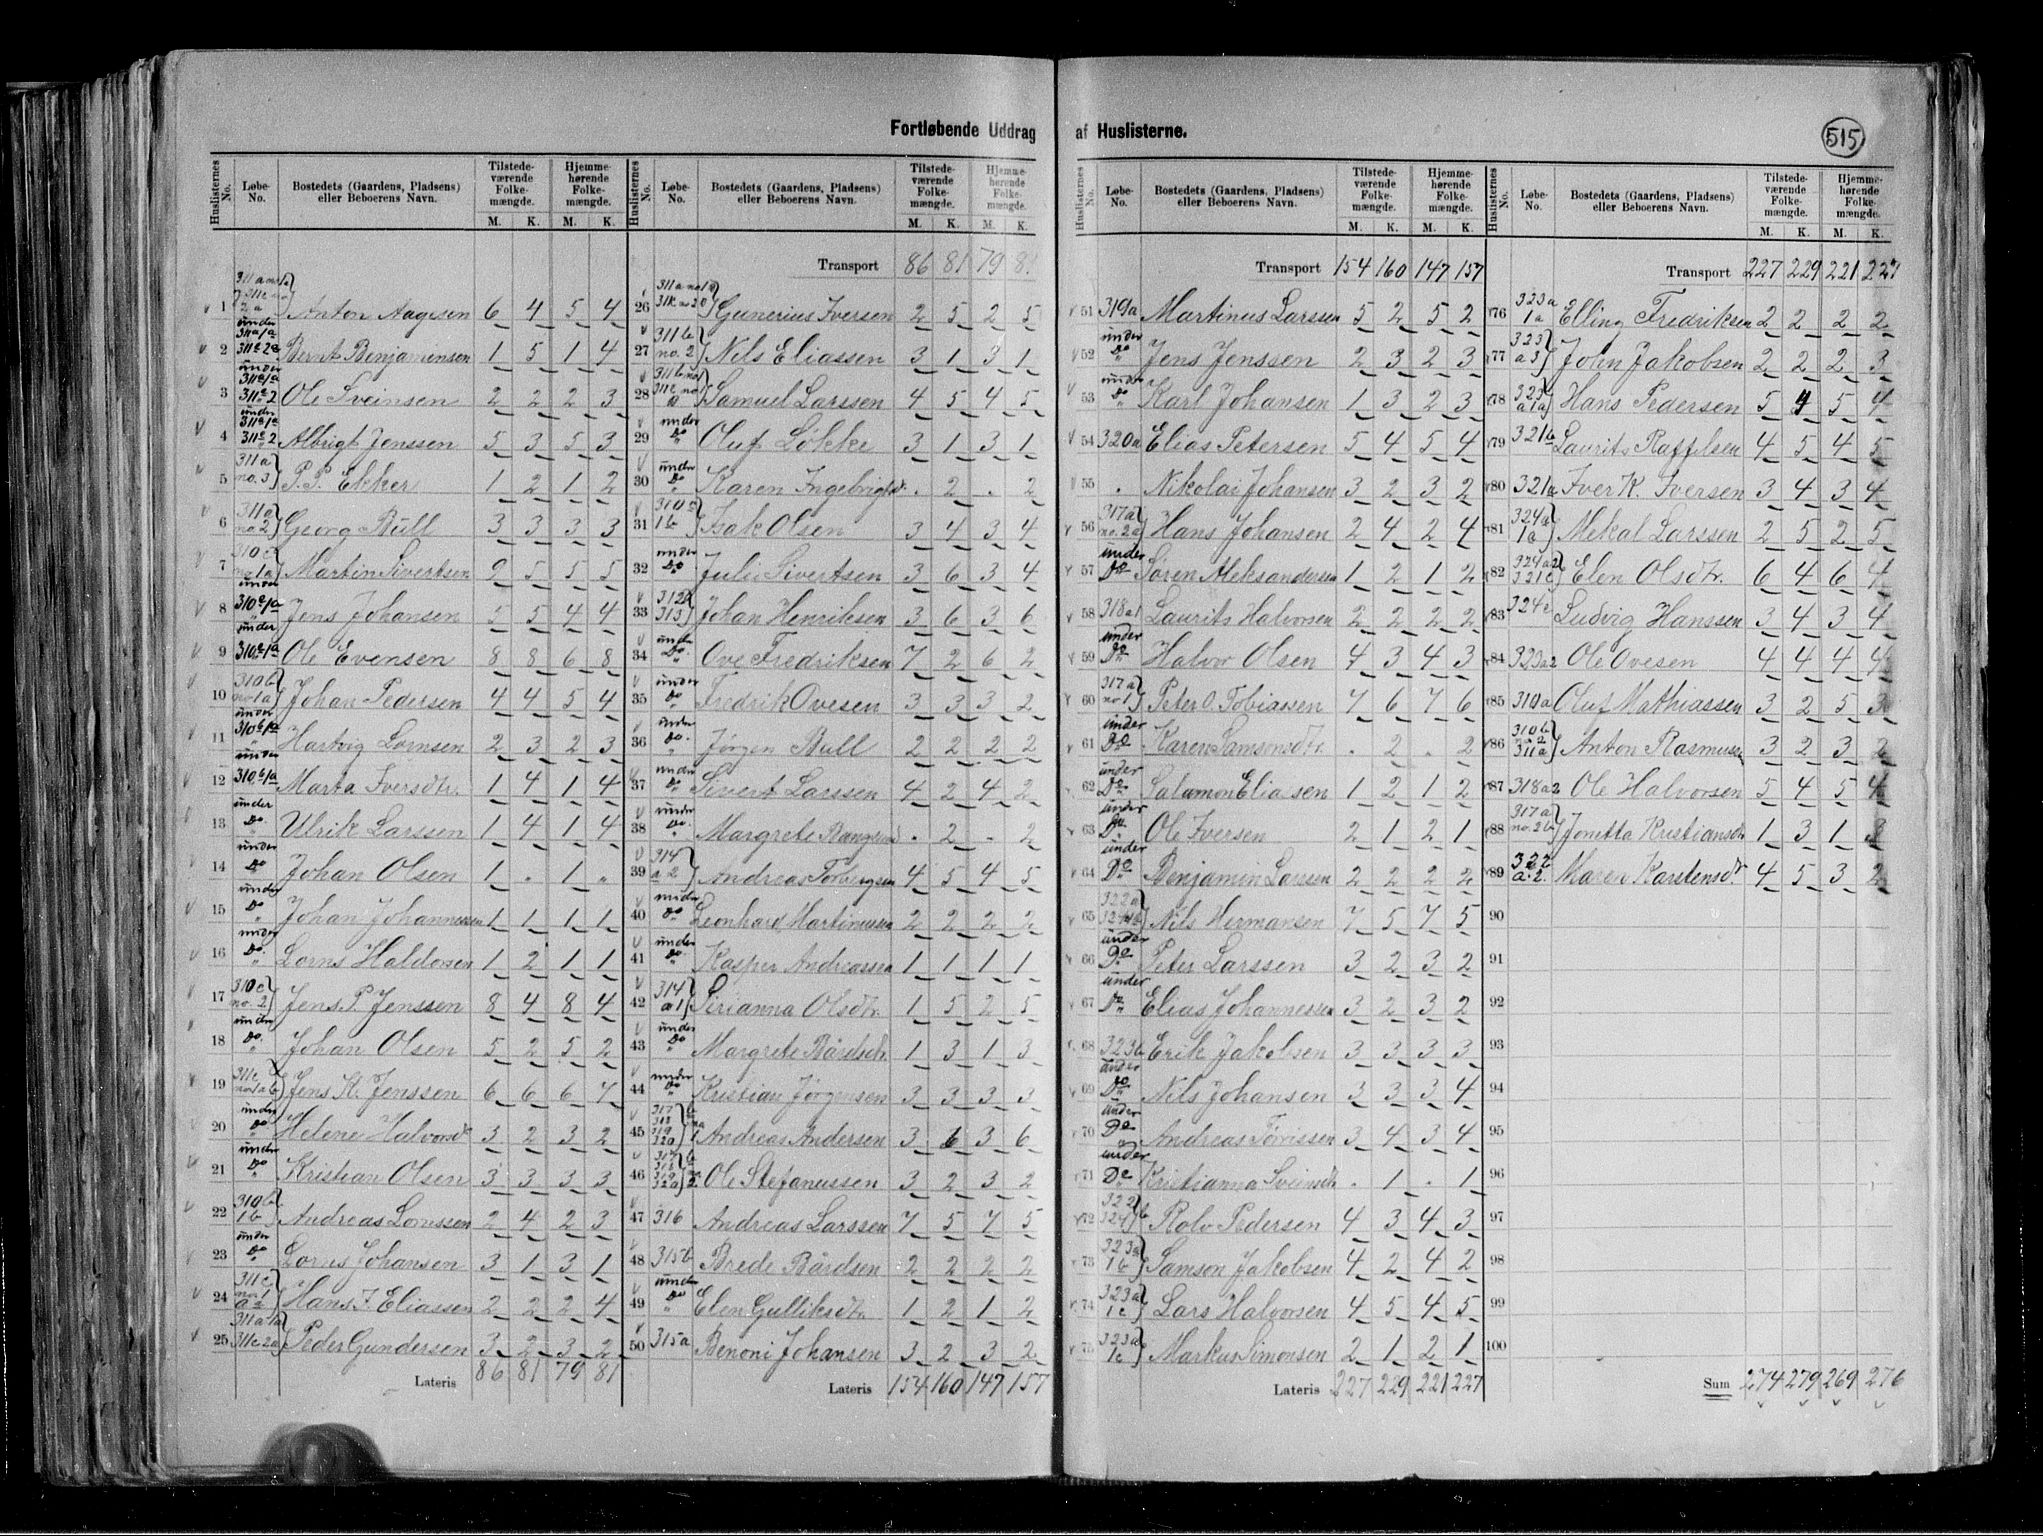 Fortløbende Uddrag af Huslisterne.
515
Huslisternes No. Løbe-No. Bostedets (Gaardens, Pladsen) eller Beboerens Navn. Tilstede-værende Folke-mængde. Hjemme-hørende Folke-mængde. M. K. M. K.
1 Anton Aagesen 6 4 5 4
2 Bernt Benjaminsen 1 5 1 4
3 Ole Sveinsen 2 2 2 3
4 Albrigt Jenssen 5 3 5 3
5 311a no. 3 P. P. Ekker 1 2 1 2
6 311a no 2 Georg Bull 3 3 3 3
7 310c no 1a Martin Sivertsen 9 5 5 5
8 under 310c 1a Jens Johansen 5 5 4 4
9 under 310c 1a Ole Evensen 8 8 6 8
10 310b no 1a Johan Pedersen 4 4 5 4
11 under 310b 1a Hartvig Lornsen 2 3 2 3
12 under 310b 1a Marta Iversdtr. 1 4 1 4
13 under Do. Ulrik Larssen 1 4 1 4
14 under Do Johan Olsen 1 . 1 "
15 under Do Johan Johannessen 1 1 1 1
16 under Do. Lorns Haldosen 1 2 1 1
17 310c no. 2 Jens P. Jenssen 8 4 8 4
18 under Do. Johan Olsen 5 2 5 2
19 311c no 1a b Jens K. Jenssen 6 6 6 7
20 under Do Helene Halvorsdtr 3 2 3 2
21 under Do Kristian Olsen 3 3 3 3
22 310b 1b Andreas Lornssen 2 4 2 3
23 under Do Lorns Johansen 3 1 3 1
24 311c no 1 a2 Hans J. Eliassen 2 2 2 4
25 311a 1a 311c 2a Peder Gundersen 3 2 3 2
Lateris 86 81 79 81
Huslisternes No. Løbe-No. Bostedets (Gaardens, Pladsen) eller Beboerens Navn. Tilstede-værende Folke-mængde. Hjemme-hørende Folke-mængde. M. K. M. K.
Transport 86 81 79 81
26 Gunerius Iversen 2 5 2 5
27 311b no. 2 Nils Eliassen 3 1 3 1
28 Samuel Larssen 4 5 4 5
29 under Do Oluf Løkke 3 1 3 1
30 under Do Karen Ingebrigtsdtr. . 2 . 2
31 310a 1b Isak Olsen 3 4 3 4
32 under Do. Julie Sivertsen 3 6 3 4
33 312 313 Johan Henriksen 3 6 3 6
34 under Do. Ove Fredriksen 7 2 6 2
35 under Do Fredrik Ovesen 3 3 3 2
36 under Do. Jørgen Bull 2 2 2 2
37 under Do Sivert Larssen 4 2 4 2
38 under Do. Margrete . 2 . 2
39 314 a2 Andreas Torbergsen 4 5 4 5
40 under Do Leonhard Martinussen 2 2 2 2
41 under Do. Kasper Andreassen 1 1 1 1
42 314 a1 Sirianna Olsdtr. 1 5 2 5
43 under Do Margrete Bårdsdtr. 1 3 1 3
44 under Do Kristian Jørgensen 3 3 3 3
45 317 318 319 320 Andreas Andersen 3 6 3 6
46 317 318 319 320 Ole Stefanussen 3 2 3 2
47 316 Andreas Larssen 7 5 7 5
48 315b Brede Bårdsen 2 2 2 2
49 under Do Elen Gulliksdtr. 1 2 1 2
50 315a Benoni Johansen 3 2 3 2
Lateris 154 160 147 157
Huslisternes No. Løbe-No. Bostedets (Gaardens, Pladsen) eller Beboerens Navn. Tilstede-værende Folke-mængde. Hjemme-hørende Folke-mængde. M. K. M. K.
Transport 154 160 147 157
51 319a Martinus Larssen 5 2 5 2
52 under Do Jens Jenssen 2 3 2 3
53 under Do Karl Johansen 1 3 2 3
54 320a Elias Petersen 5 4 5 4
55 " Nikolai Johansen 3 2 3 2
56 317a no. 2a Hans Johansen 2 4 2 4
57 under Do Søren Aleksandersen 1 2 1 2
58 318a1 Laurits Halvorsen 2 2 2 2
59 under Do Halvor Olsen 4 3 4 3
60 317a no 1 Peter O. Tobiassen 7 6 7 6
61 under Do Karen Samsonsdtr. . 2 . 2
62 under Do Salamon Eliassen 1 2 1 2
63 under Do. Ole Iversen 2 1 2 1
64 under Do Benjamin Larssen 2 2 2 2
65 322a 324b Nils Hermansen 7 5 7 5
66 under Do Peter Larssen 3 2 3 2
67 under Do Elias Johannessen 3 2 3 2
68 323b Erik Jakobsen 3 3 3 3
69 under Do Nils Johansen 3 3 3 4
70 under Do Andreas Tørrissen 3 4 3 4
71 under Do Kristianna Sveinsdtr . 1 . 1
72 322 324 b Rolv Pedersen 4 3 4 3
73 323a 1b Samson Jakobsen 4 2 4 2
74 323a 1c Lars Halvorsen 4 5 4 5
75 323a 1c Markus Simonsen 2 1 2 1
Lateris 227 229 221 227
Huslisternes No. Løbe-No. Bostedets (Gaardens, Pladsen) eller Beboerens Navn. Tilstede-værende Folke-mængde. Hjemme-hørende Folke-mængde. M. K. M. K.
Transport 227 229 221 227
76 323a 1a Elling Fredriksen 2 2 2 2
77 323 a3 John Jakobsen 2 2 2 3
78 323 a1a Hans Pedersen 5 4 5 4
79 321b Laurits Raffelsen 4 5 4 5
80 321a Iver K. Iversen 3 4 3 4
81 324a 1a Mekal Larssen 2 5 2 5
82 324a2 321c Elen Olsdtr. 6 4 6 4
83 324c Ludvig Hanssen 3 4 3 4
84 323a2 Ole Ovesen 4 4 4 4
85 310a Oluf Mathiassen 3 2 5 3
86 310b no. 2 311a Anton Rasmussen 3 2 3 2
87 318a2 Ole Halvorsen 5 4 5 4
88 317a no. 2b Jonetta Kristiansdtr 1 3 1 3
89 322 a. 2. Maren Karstensdtr. 4 5 3 2
90
91
92
93
94
95
96
97
98
99
100
Sum 274 279 269 276